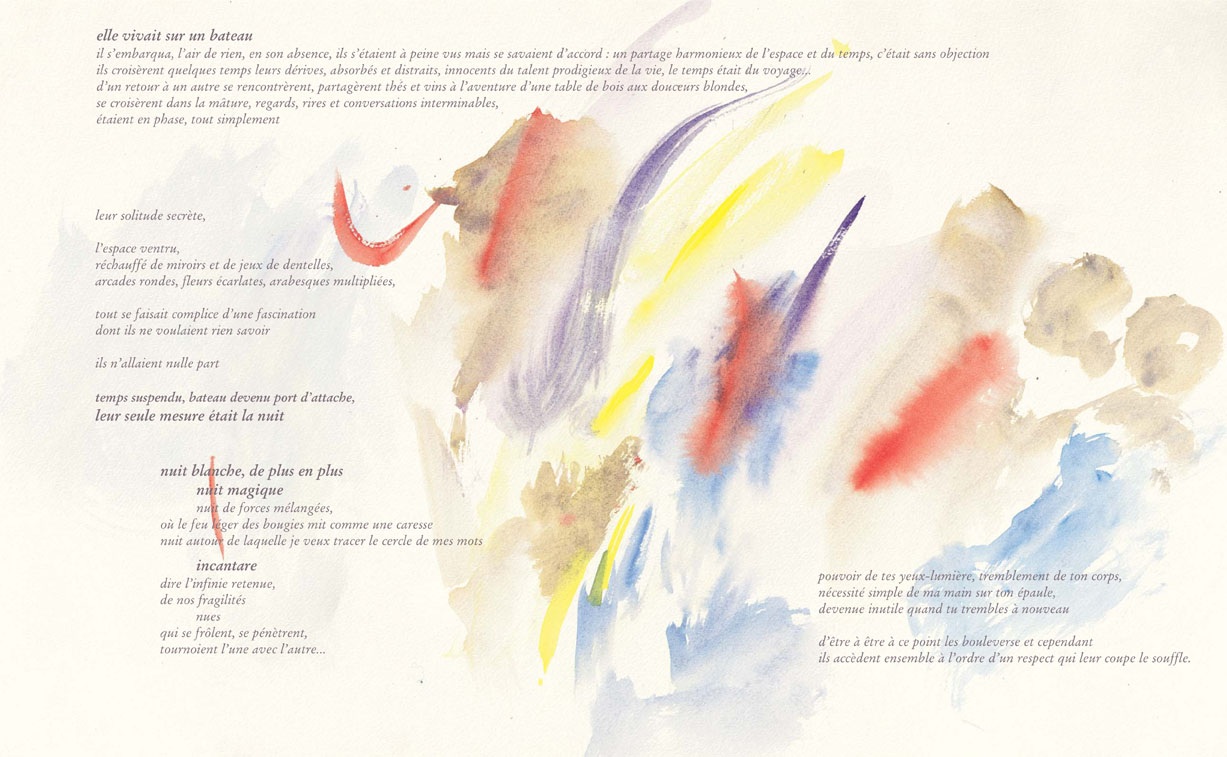 elle vivait sur un bateau
il s'embarqua, l'air de rien, en son absence, ils s'étaient à peine vus mais se savaient d'accord : un partage harmonieux de l'espace et du temps, c'était sans objection
ils croisèrent quelques temps leurs dérives, absorbés et distraits, innocents du talent prodigieux de la vie, le temps était du voyage...
d'un retour à un autre se rencontrèrent, partagèrent thés et vins à l'aventure d'une table de bois aux douceurs blondes,
se croisèrent dans la mâture, regards, rires et conversations interminables,
étaient en phase, tout simplement
leur solitude secrète,
l'espace ventru,
réchauffé de miroirs et de jeux de dentelles,
arcades rondes, fleurs écarlates, arabesques multipliées,
tout se faisait complice d'une fascination
dont ils ne voulaient rien savoir
ils n'allaient nulle part
temps suspendu, bateau devenu port d'attache,
leur seule mesure était la nuit
nuit blanche, de plus en plus
nuit magique
nuit de forces mélangées,
où le feu léger des bougies mit comme une caresse
nuit autour de laquelle je veux tracer le cercle de mes mots
incantare
dire l'infinie retenue,
de nos fragilités
nues
qui se frôlent, se pénètrent,
tournoient l'une avec l'autre...
pouvoir de tes yeux-lumière, tremblement de ton corps,
nécessité simple de ma main sur ton épaule,
devenue inutile quand tu trembles à nouveau
d'être à être à ce point les bouleverse et cependant
ils accèdent ensemble à l'ordre d'un respect qui leur coupe le souffle.